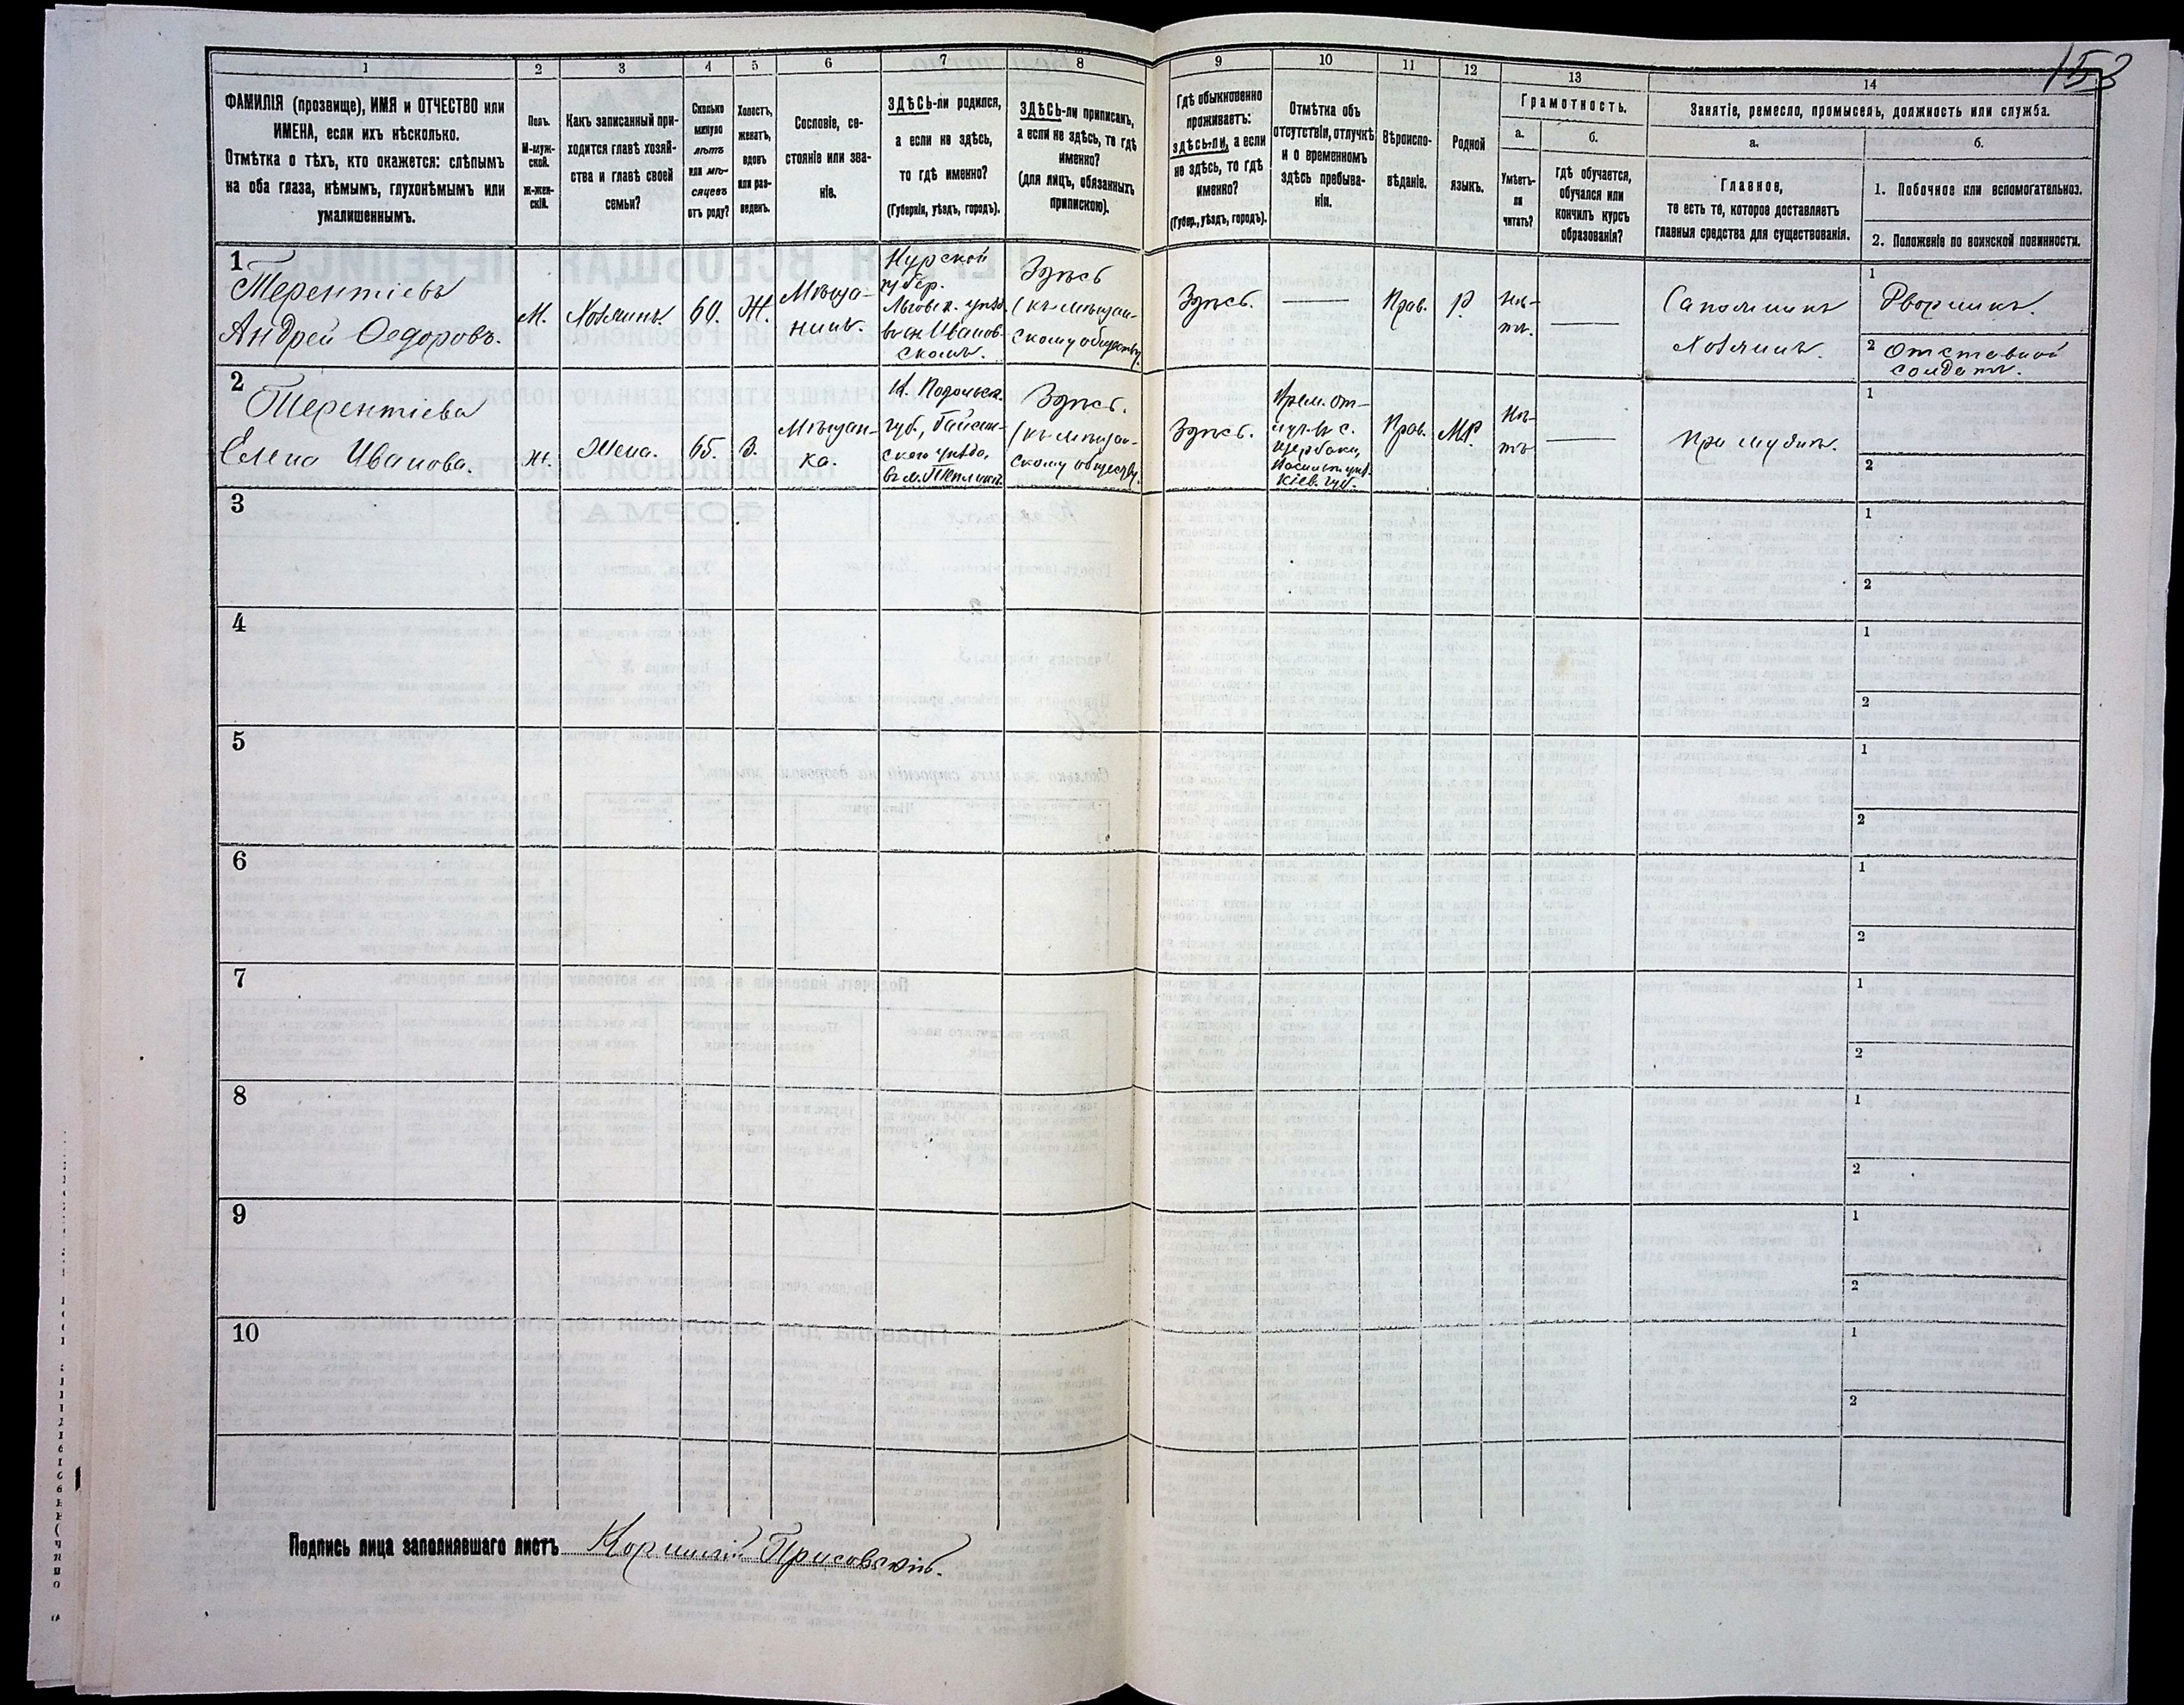 153
1 2 3 4 5 6 7 8 9 10 11 12 13 14
ФАМИЛІЯ (прозвище), ИМЯ и ОТЧЕСТВО или
ИМЕНА, если ихъ нѣсколько.
Отмѣтка о тѣхъ, кто окажется: слѣпымъ
на оба глаза, нѣмымъ, глухонѣмымъ или
умалишеннымъ.
Полъ.
М-муж-
ской.
Ж-жен-
скій.
Какъ записанный при-
ходится главѣ хозяй-
ства и главѣ своей
семьи?
Сколько
минуло
лѣтъ
или мѣ-
сяцевъ
отъ роду?
Холостъ,
женатъ,
вдовъ
или раз-
веденъ.
Сословіе, со-
стояніе или зва-
ніе.
ЗДѢСЬ-ли родился,
а если не здѣсь,
то гдѣ именно?
(Губернія, уѣздъ, городъ).
ЗДѢСЬ-ли приписанъ,
а если не здѣсь, то гдѣ
именно?
(для лицъ, обязанныхъ
припискою).
Гдѣ обыкновенно
проживаетъ:
здѣсь-ли, а если
не здѣсь, то гдѣ
именно?
(Губер., уѣздъ, городъ).
Отмѣтка объ
отсутствіи, отлучкѣ
и о временномъ
здѣсь пребыва-
ніи.
Вѣроиспо-
вѣданіе.
Родной
языкъ.
Грамотность.
а.
Умѣетъ-
ли
читать?
б.
Гдѣ обучается,
обучался или
кончилъ курсъ
образованія?
Занятіе, ремесло, промыселъ, должность или служба.
а.
Главное,
то есть то, которое доставляетъ
главныя средства для существованія.
б.
1. Побочное или вспомогательное.
2. Положеніе по воинской повинности.
1
Терентіевъ
Андрей Ѳедоровъ.
М.
Хозяинъ.
60.
Ж.
Мѣща-
нинъ.
Курской
губер.
Льговск. уѣзд.
въ сл. Иванов-
скомъ.
Здѣсь
(къ мѣщан-
скому обществу.
Здѣсь.
Прав.
Р.
Нѣ-
тъ.
Сапожникъ
Хозяинъ.
1
Дворникъ.
2 Отставной
солдатъ.
2
Терентіева
Елена Иванова.
Ж.
Жена.
65.
З.
Мѣщан-
ка.
К. Подольск.
губ., Гайсин-
скаго уѣзда,
въ м. Тепликѣ
Здѣсь.
(къ мѣщан-
скому обществу.
Здѣсь.
Врем. от-
луч. въ с.
Щербаки,
Васильк. уѣз.
Кіев. губ.
Прав.
МР.
Нѣ-
тъ
При мужѣ.
1
2
3
1
2
4
1
2
5
1
2
6
1
2
7
1
2
8
1
2
9
1
2
10
1
2
Подпись лица заполнявшаго листъ Присовскій.